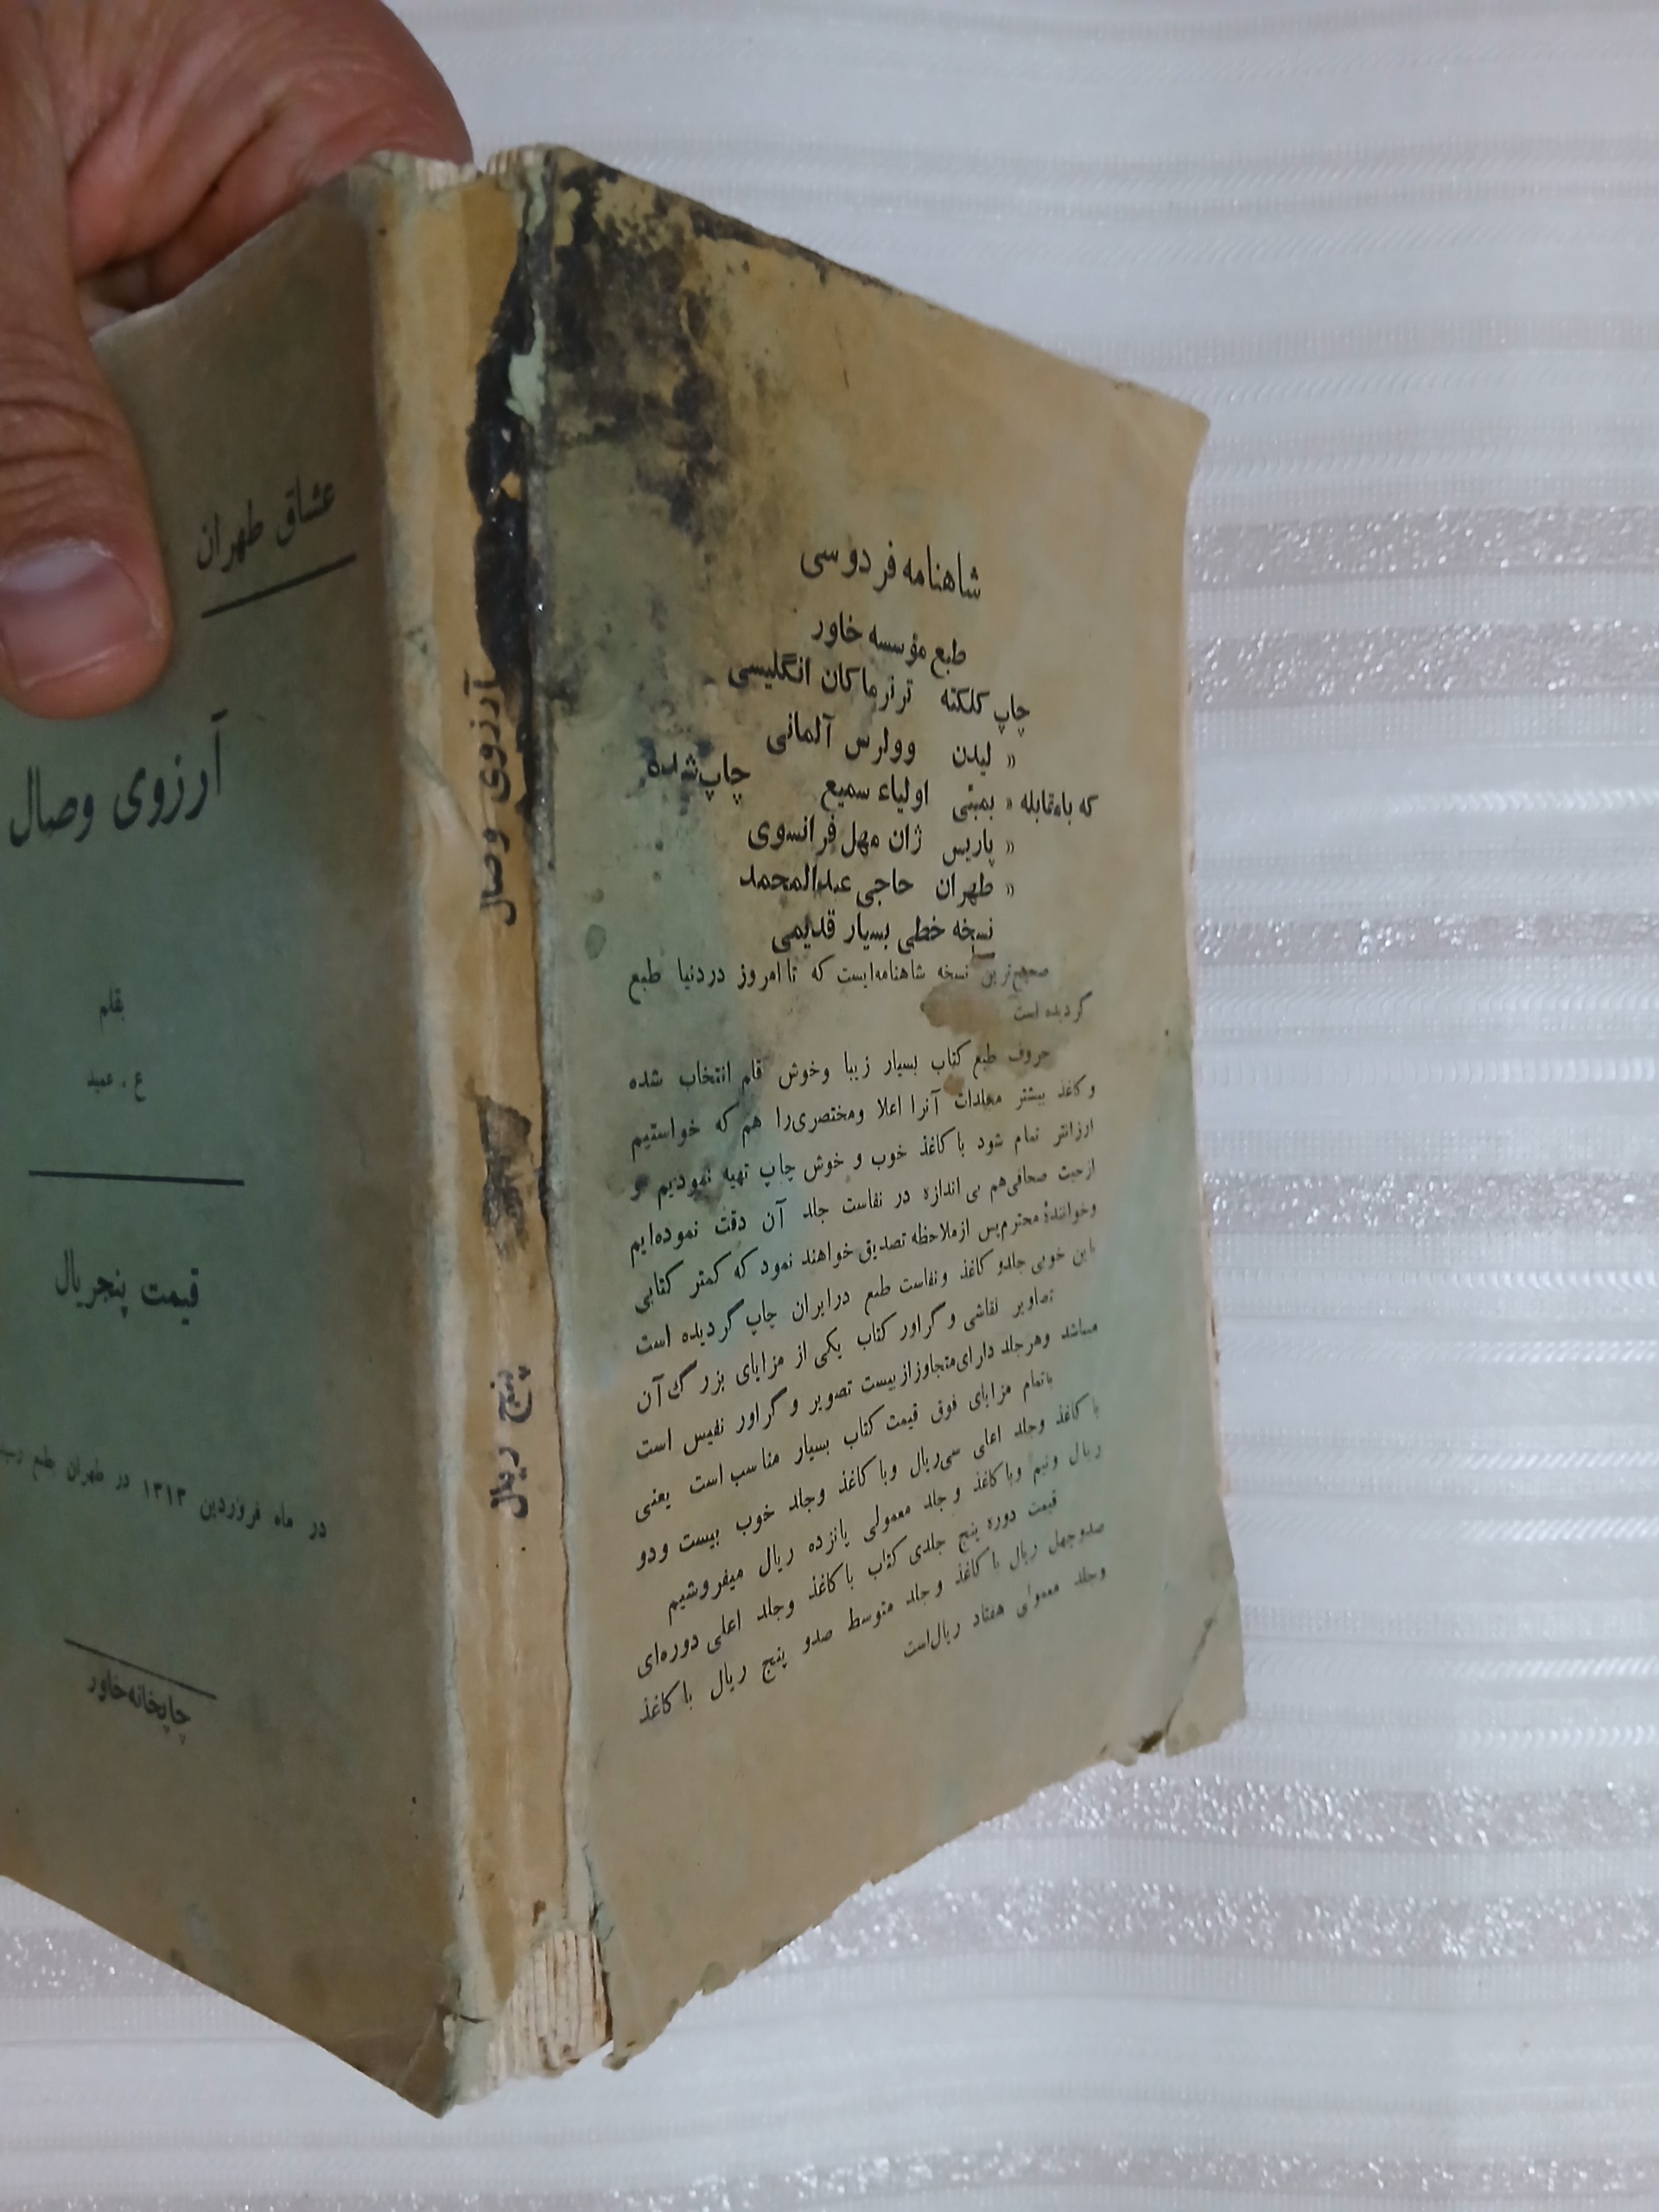 عشاق طهران
آرزوی وصال
بقلم
ع . عمید
قیمت پنجریال
در ماه فروردین ۱۳۱۳ در طهران طبع
چاپخانه خاور
آرزوی وصال
پنج ریال
شاهنامه فردوسی
طبع مؤسسه خاور
چاپ کلکته ترنرماکان انگلیسی
« لیدن وولرس آلمانی
که بامقابله « بمبئی اولیاء سمیع چاپ شده
« پاریس ژان مهل فرانسوی
« طهران حاجی عبدالمحمد
نسخه خطی بسیار قدیمی
صحیح‌ترین نسخه شاهنامه‌ایست که تا امروز در دنیا طبع
گردیده است
حروف طبع کتاب بسیار زیبا وخوش قلم انتخاب شده
و کاغذ بیشتر مجلدات آنرا اعلا ومختصری‌را هم که خواستیم
ارزانتر تمام شود با کاغذ خوب و خوش چاپ تهیه نمودیم و
ازحیث صحافی‌هم بی اندازه در نفاست جلد آن دقت نموده‌ایم
وخوانندهٔ محترم‌پس ازملاحظه تصدیق خواهند نمود که کمتر کتابی
باین خوبی جلدو کاغذ ونفاست طبع درایران چاپ گردیده است
تصاویر نقاشی و گراور کتاب یکی از مزایای بزرگ آن
میباشد وهرجلد دارای متجاوز از بیست تصویر و گراور نفیس است
باتمام مزایای فوق قیمت کتاب بسیار مناسب است یعنی
با کاغذ وجلد اعلی سی‌ریال وبا کاغذ وجلد خوب بیست ودو
ریال ونیم وبا کاغذ و جلد معمولی پانزده ریال میفروشیم
قیمت دوره پنج جلدی کتاب با کاغذ وجلد اعلی دوره‌ای
صدوچهل ریال با کاغذ و جلد متوسط صدو پنج ریال با کاغذ
وجلد معمولی هفتاد ریال‌است